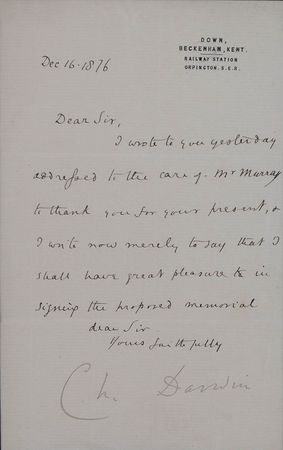 DOWN,
BECKENHAM, KENT.
RAILWAY STATION
ORPINGTON. S.E.R.
Dec 16. 1876
Dear Sir,
I wrote to you yesterday
addressed to the care of Mr Murray
to thank you for your present, &
I write now merely to say that I
shall have great pleasure in
signing the proposed memorial
dear Sir
Yours faithfully
Ch. Darwin